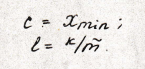 c = x min ;
l = κ/m̃.